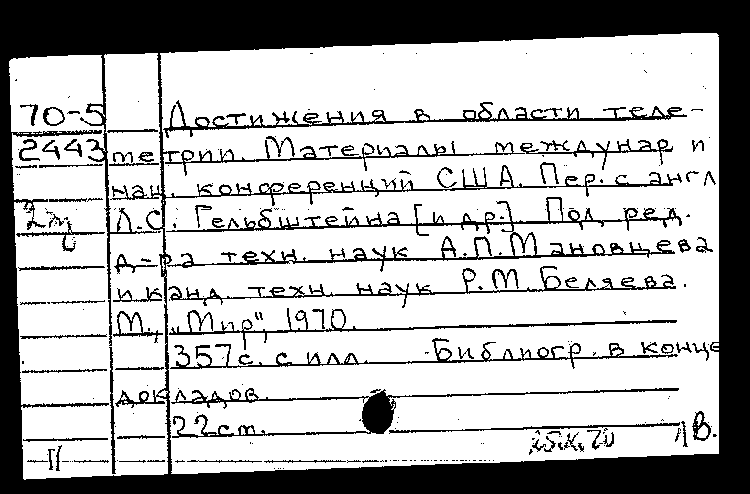 70-5 Достижения в области теле-
2443 метрии. Материалы междунар и
нац. конференций США. Пер. с англ
Л.С. Гельбштейна [и др.]. Под ред.
д-ра техн. наук А.П.Мановцева
и канд. техн. наук Р.М.Беляева.
М., „Мир", 1970.
357с. с илл. Библиогр. в конце
докладов.
22см.
В.